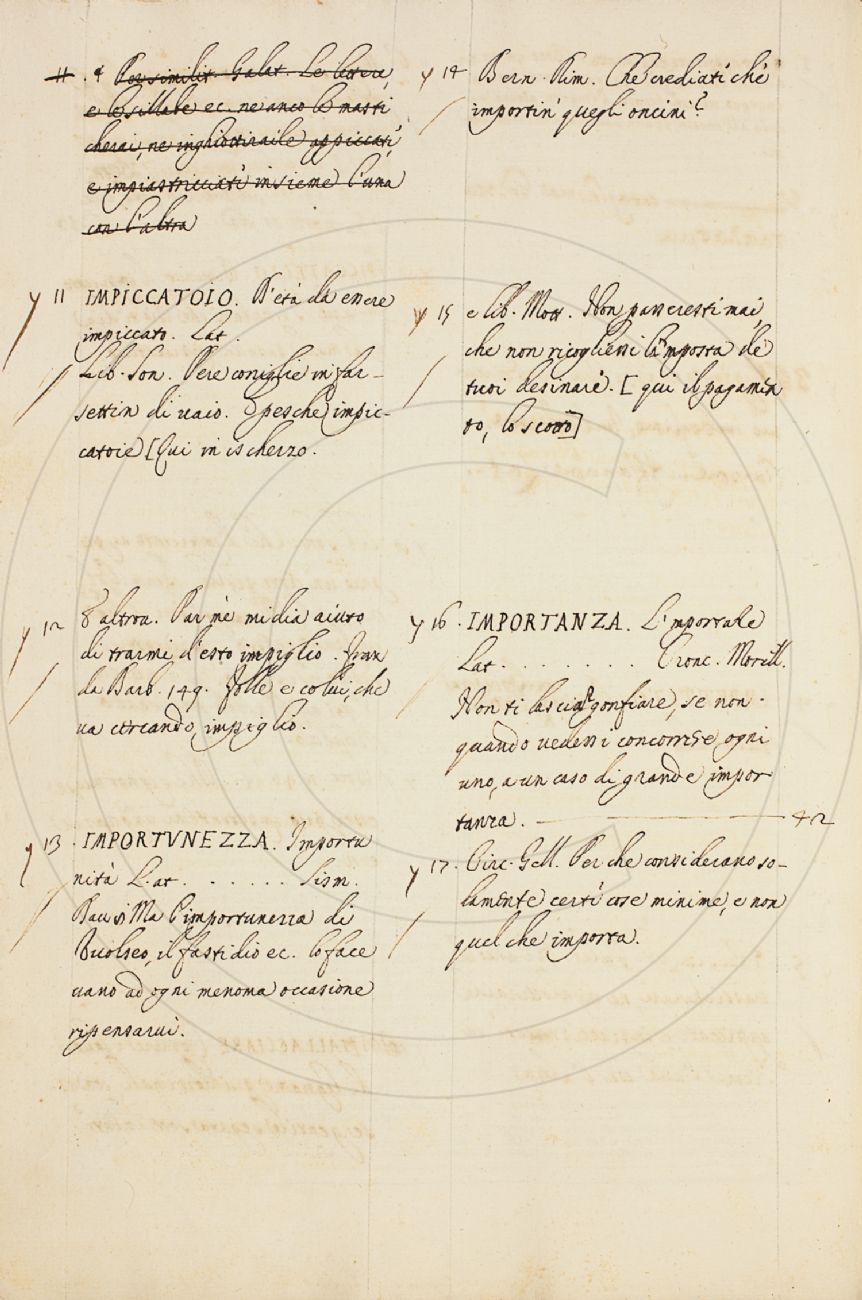 11. ¶ Per similit. Galat. Le lettere,
e le sillabe ec. ne anco le masti
cherai, ne inghiottiraile appiccati,
e impiastricciati insieme l'una
con l'altra
y 11 IMPICCATOIO. D'età da essere
impiccato. Lat.
Lib. Son. Pere coniglie in far-
settin di vaio. E pesche impic-
catoie [Qui in ischerzo.
y 12 altrov. Par me mi dia aiuto
di trarmi d'esto impiglio. Fran
da Barb. 149. folle e colui, che
va cercando impiglio.
y 13. IMPORTVNEZZA. Importu
nità Lat. . . . . . Sism.
Ma l'importunezza di
Vuolseo, il fastidio ec. lo face
vano ad ogni menoma occasione
ripensarvi.
y 14 Bern. Rim. Che crediati che
importin' quegli oncini?
y 15 e lib. Mott. Non passeresti mai,
che non ricogliessi la'mposta de
tuoi desinari. [qui il pagamen
to, lo scotto]
y 16. IMPORTANZA. L'mportare
Lat. . . . . . . . Cronc. Morell.
Non ti lasciar gonfiare, se non
quando vedessi concorrere ogni
uno, a un caso di grande impor
tanza. 42
y 17. Circ. Gell. Per che considerano so-
lamente certi cose minime, e non
quel che importa.